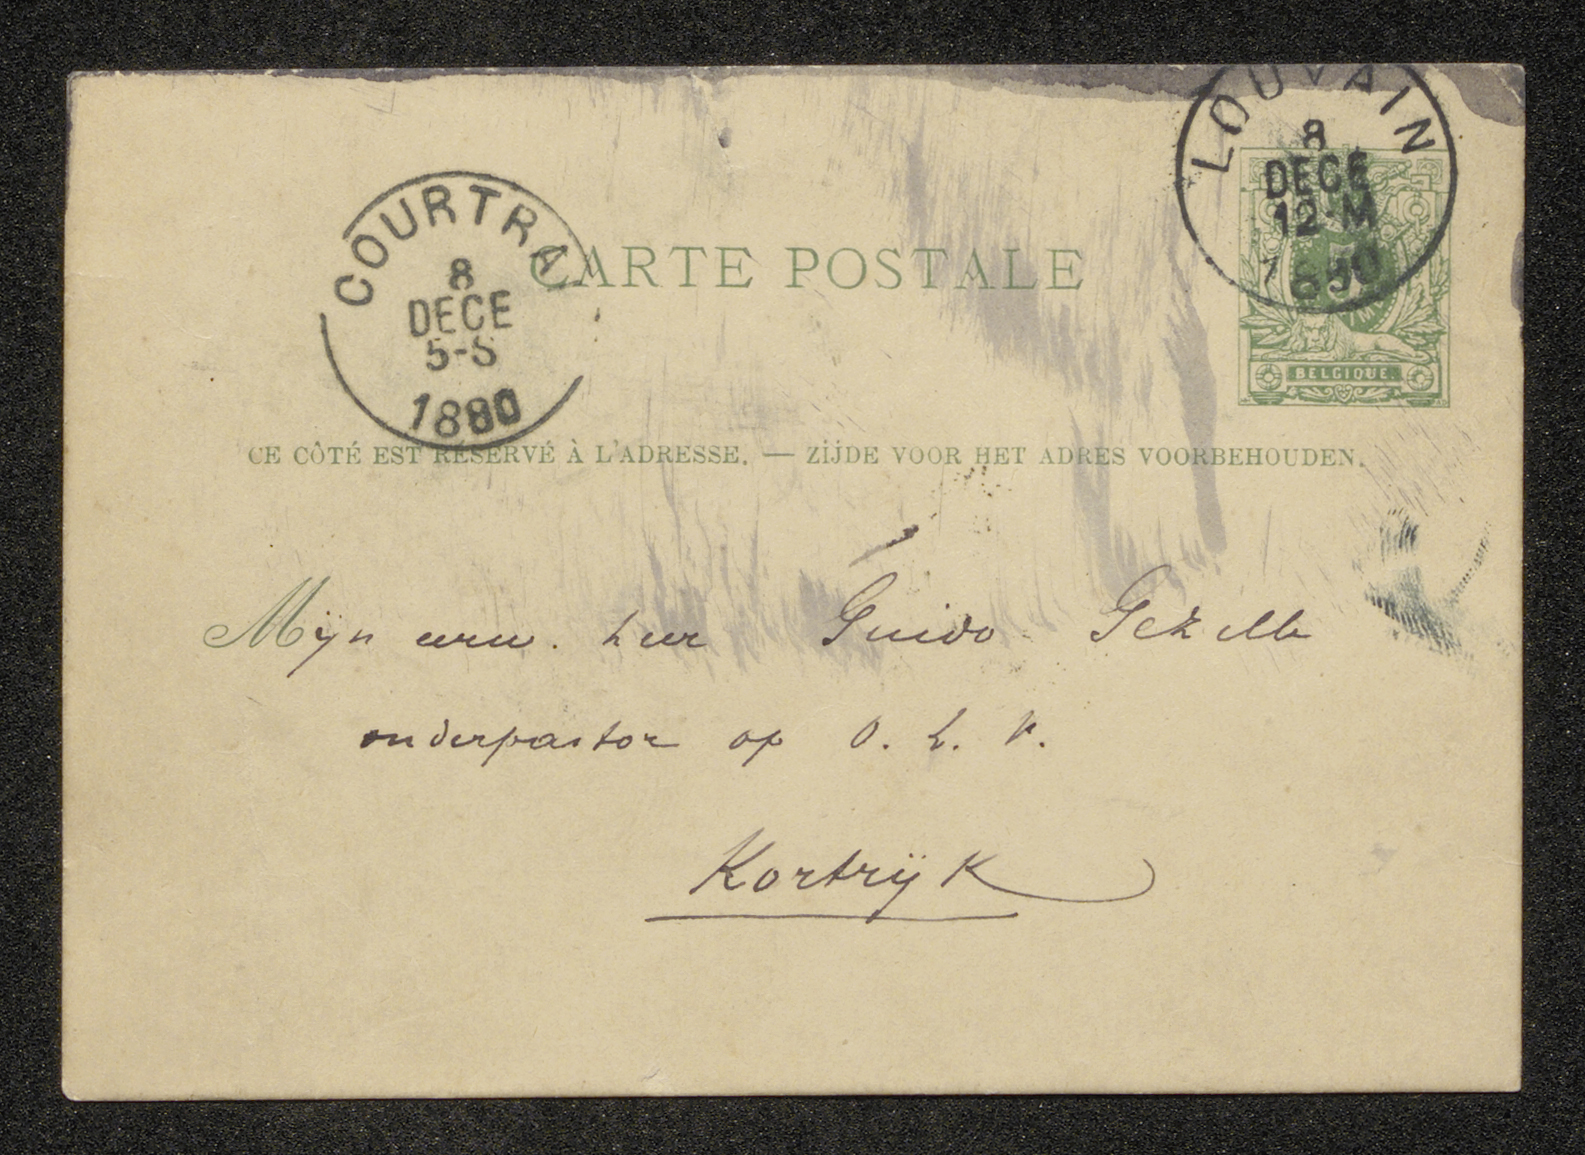 LOUVAIN
8
DECE
12-M
1880
COURTRA
8
DECE
5-S
1880
CARTE POSTALE
BELGIQUE.
CE CÔTÉ EST RÉSERVÉ À L'ADRESSE. — ZIJDE VOOR HET ADRES VOORBEHOUDEN.
Mijn eerw. heer Guido Gezelle
onderpastor op O. L. V.
Kortrijk